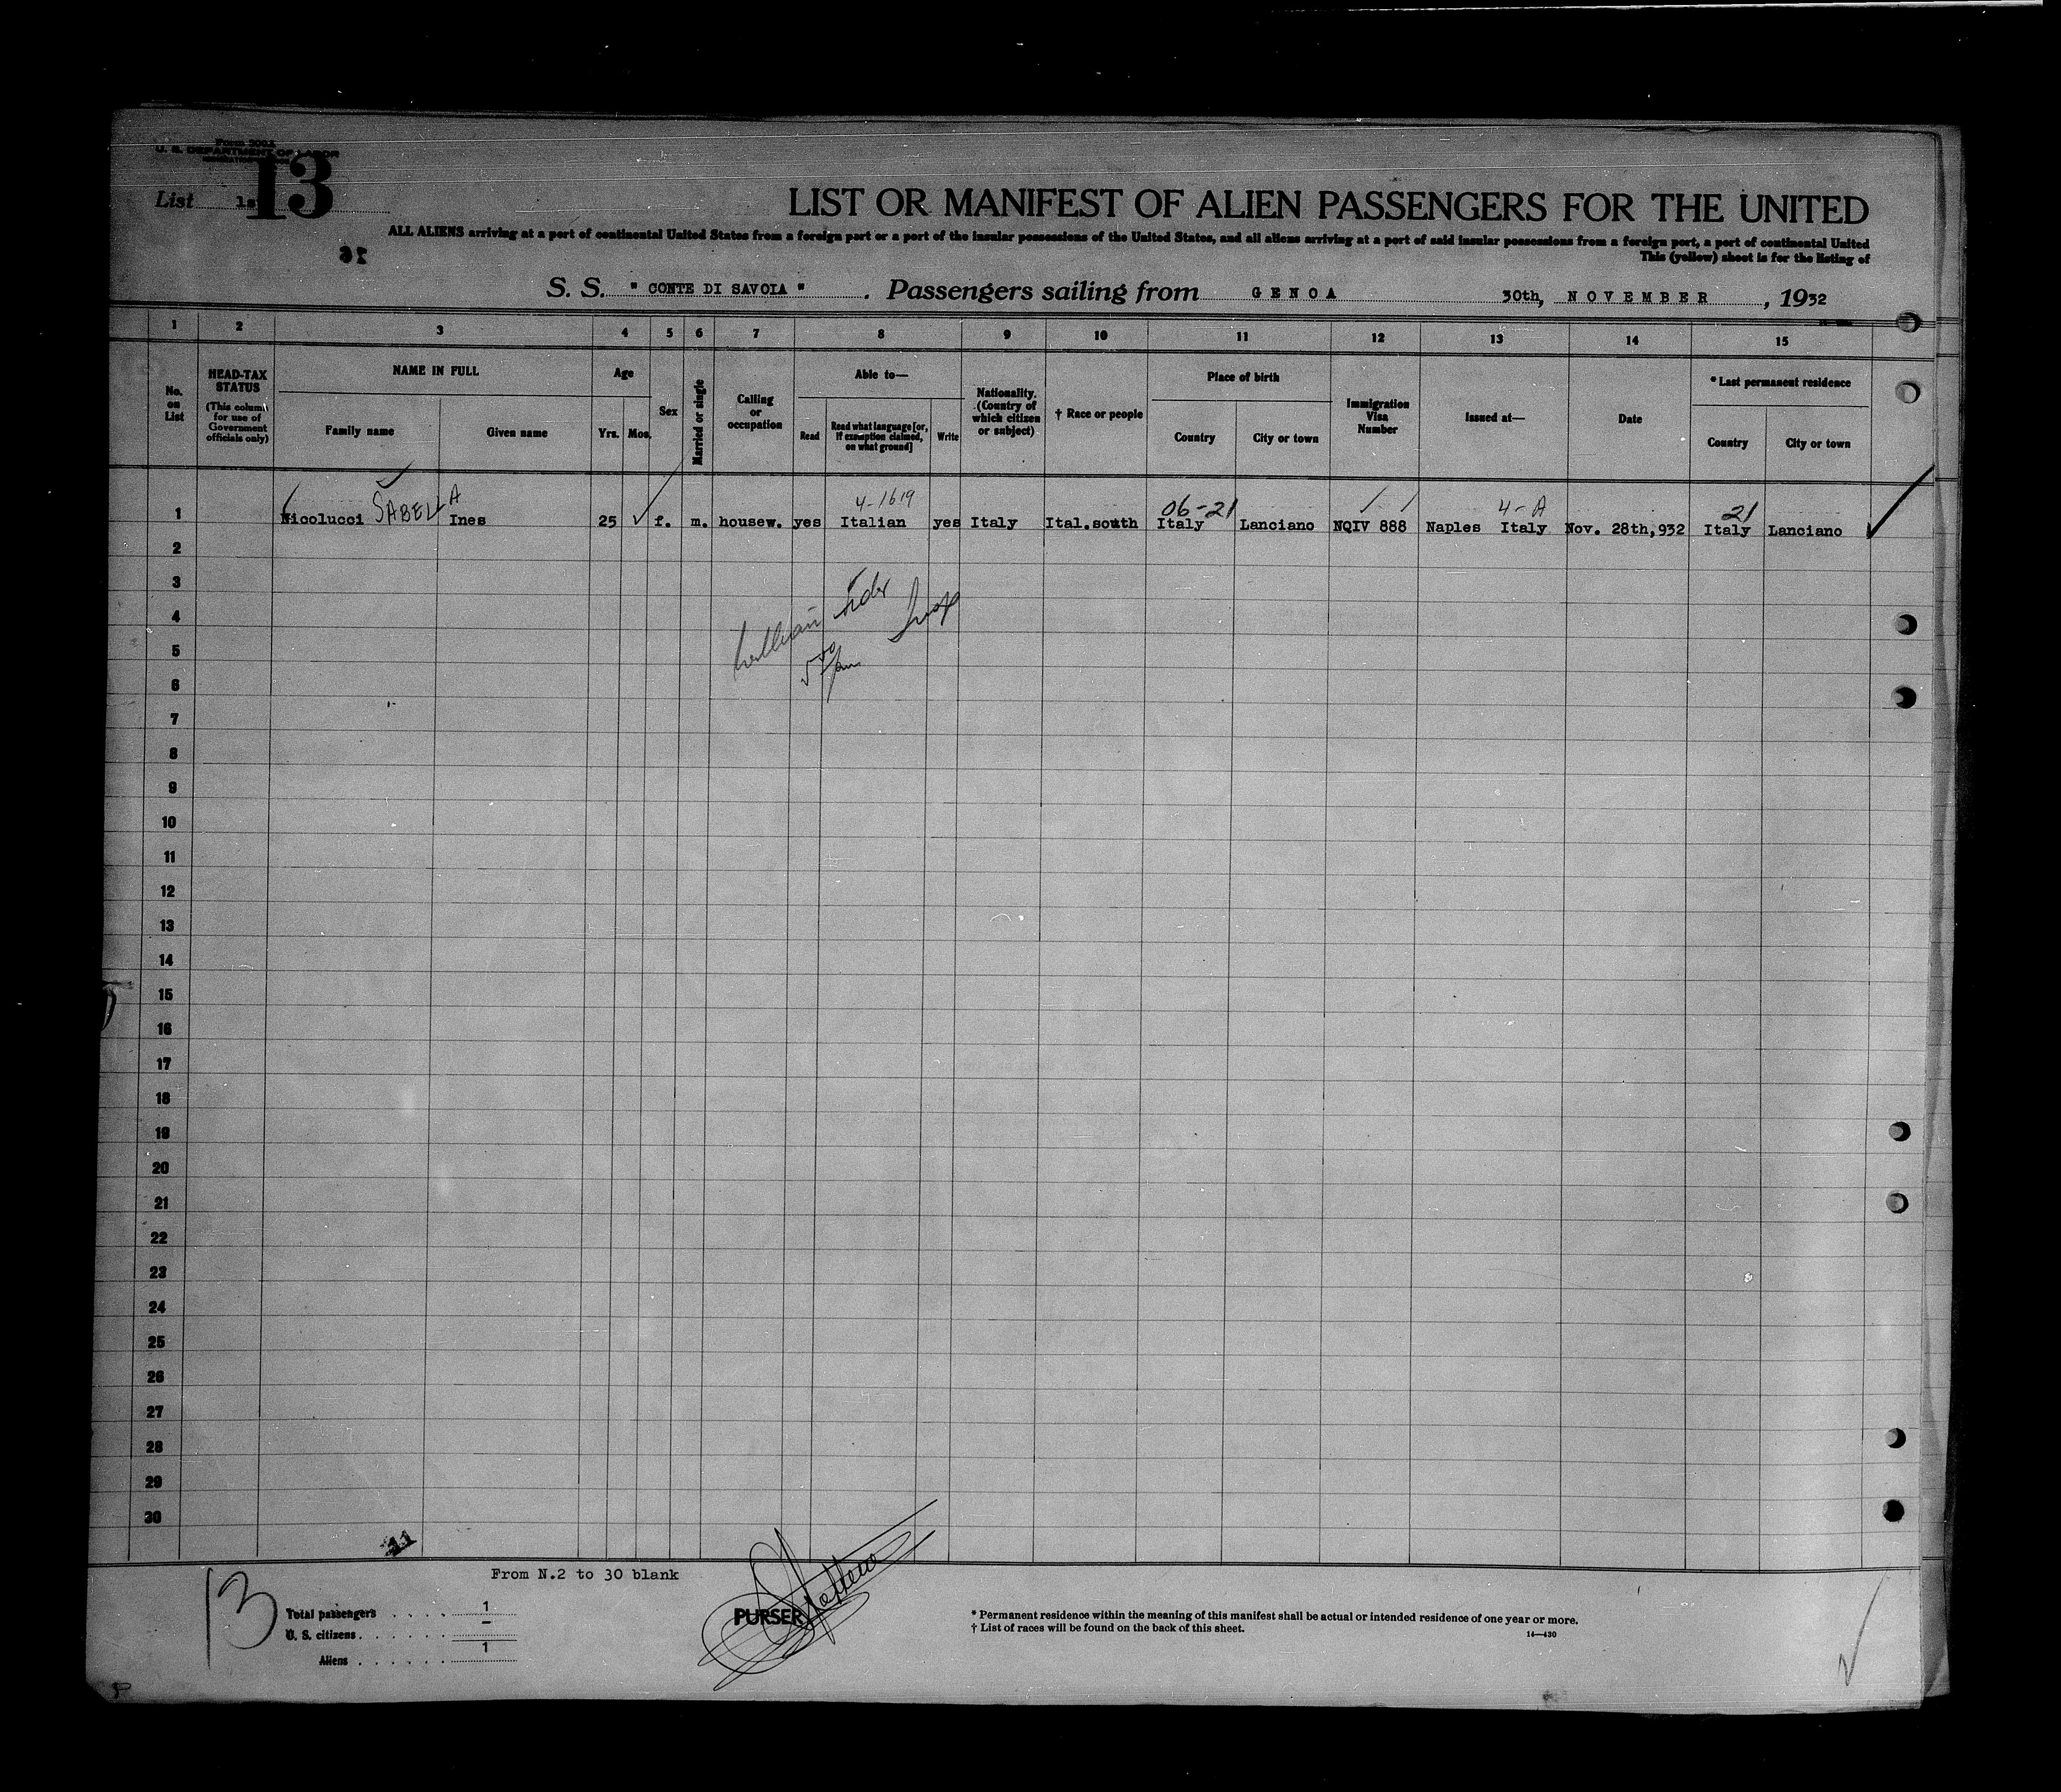 Form 500A
U. S. DEPARTMENT OF LABOR
List 1s 13
LIST OR MANIFEST OF ALIEN PASSENGERS FOR THE UNITED
ALL ALIENS arriving at a port of continental United States from a foreign port or a port of the insular possessions of the United States, and all aliens arriving at a port of said insular possessions from a foreign port, a port of continental United
This (yellow) sheet is for the listing of
S. S. " CONTE DI SAVOIA " . Passengers sailing from GENOA 30th, NOVEMBER , 1932
1 2 3 4 5 6 7 8 9 10 11 12 13 14 15
No. on List
HEAD-TAX STATUS
(This column for use of Government officials only)
NAME IN FULL
Family name
Given name
Age
Yrs. Mos.
Sex
Married or single
Calling or occupation
Able to—
Read
Read what language [or, if exemption claimed, on what ground]
Write
Nationality. (Country of which citizen or subject)
† Race or people
Place of birth
Country
City or town
Immigration Visa Number
Issued at—
Date
* Last permanent residence
Country
City or town
A 4-1619 06-21 4-A 21
1 Nicolucci SABELL Ines 25 f. m. housew. yes Italian yes Italy Ital.south Italy Lanciano NQIV 888 Naples Italy Nov. 28th,932 Italy Lanciano
2
3
4
5
6
7
8
9
10
11
12
13
14
15
16
17
18
19
20
21
22
23
24
25
26
27
28
29
30
11
From N.2 to 30 blank
13
Total passengers . . . . 1
U. S. citizens . . . . . –
Aliens . . . . . . 1
PURSER
* Permanent residence within the meaning of this manifest shall be actual or intended residence of one year or more.
† List of races will be found on the back of this sheet.
14—430